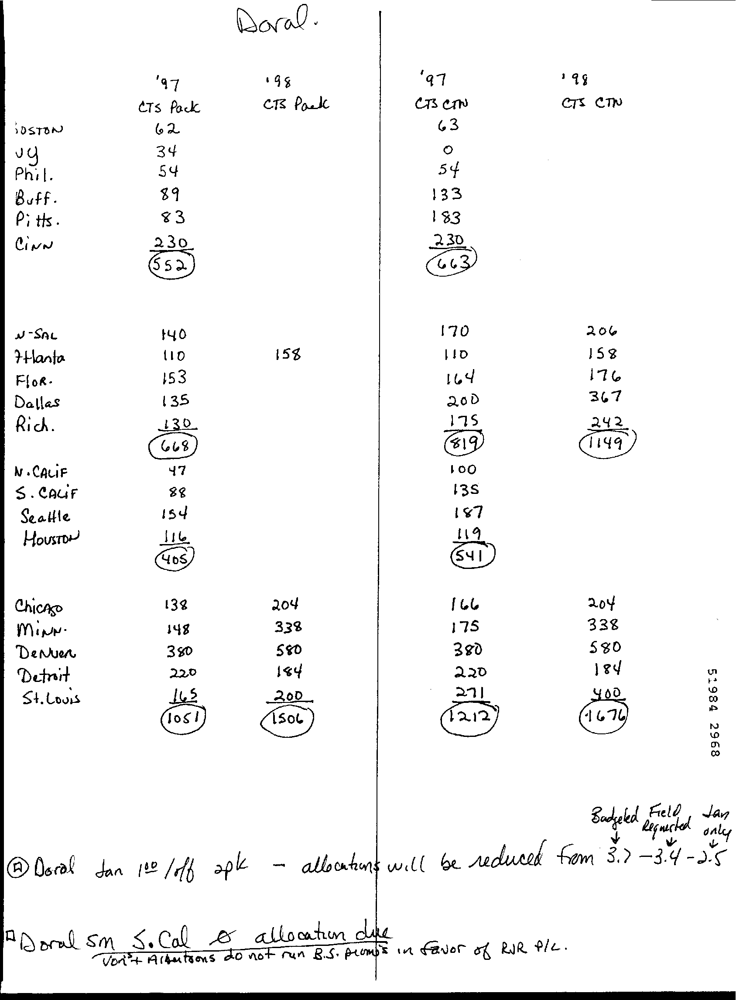 Doral.
'97 '98 '97 '98
CTS Pack CTS Pack CTS CTN CTS CTN
BOSTON 62 63
NY 34 0
Phil. 54 54
Buff. 89 133
Pitts. 83 183
CINN 230 230
552 663
W-SAL 140 170 206
Atlanta 110 158 110 158
FLOR. 153 164 176
Dallas 135 200 367
Rich. 130 175 242
668 819 1149
N. CALIF 47 100
S. CALIF 88 135
Seattle 154 187
HOUSTON 116 119
405 541
Chicago 138 204 166 204
MINN. 148 338 175 338
DENVER 380 580 380 580
Detroit 220 184 220 184
St. Louis 165 200 271 400
1051 1506 1212 1676
51984 2968
Budgeted Field Requested Jan only
Doral Jan 1.00/off 2pk - allocations will be reduced from 3.7 - 3.4 - 2.5
Doral Sm S. Cal 0 allocation due
Von's + Albertsons do not run B.S. promo's in favor of RJR P/L.